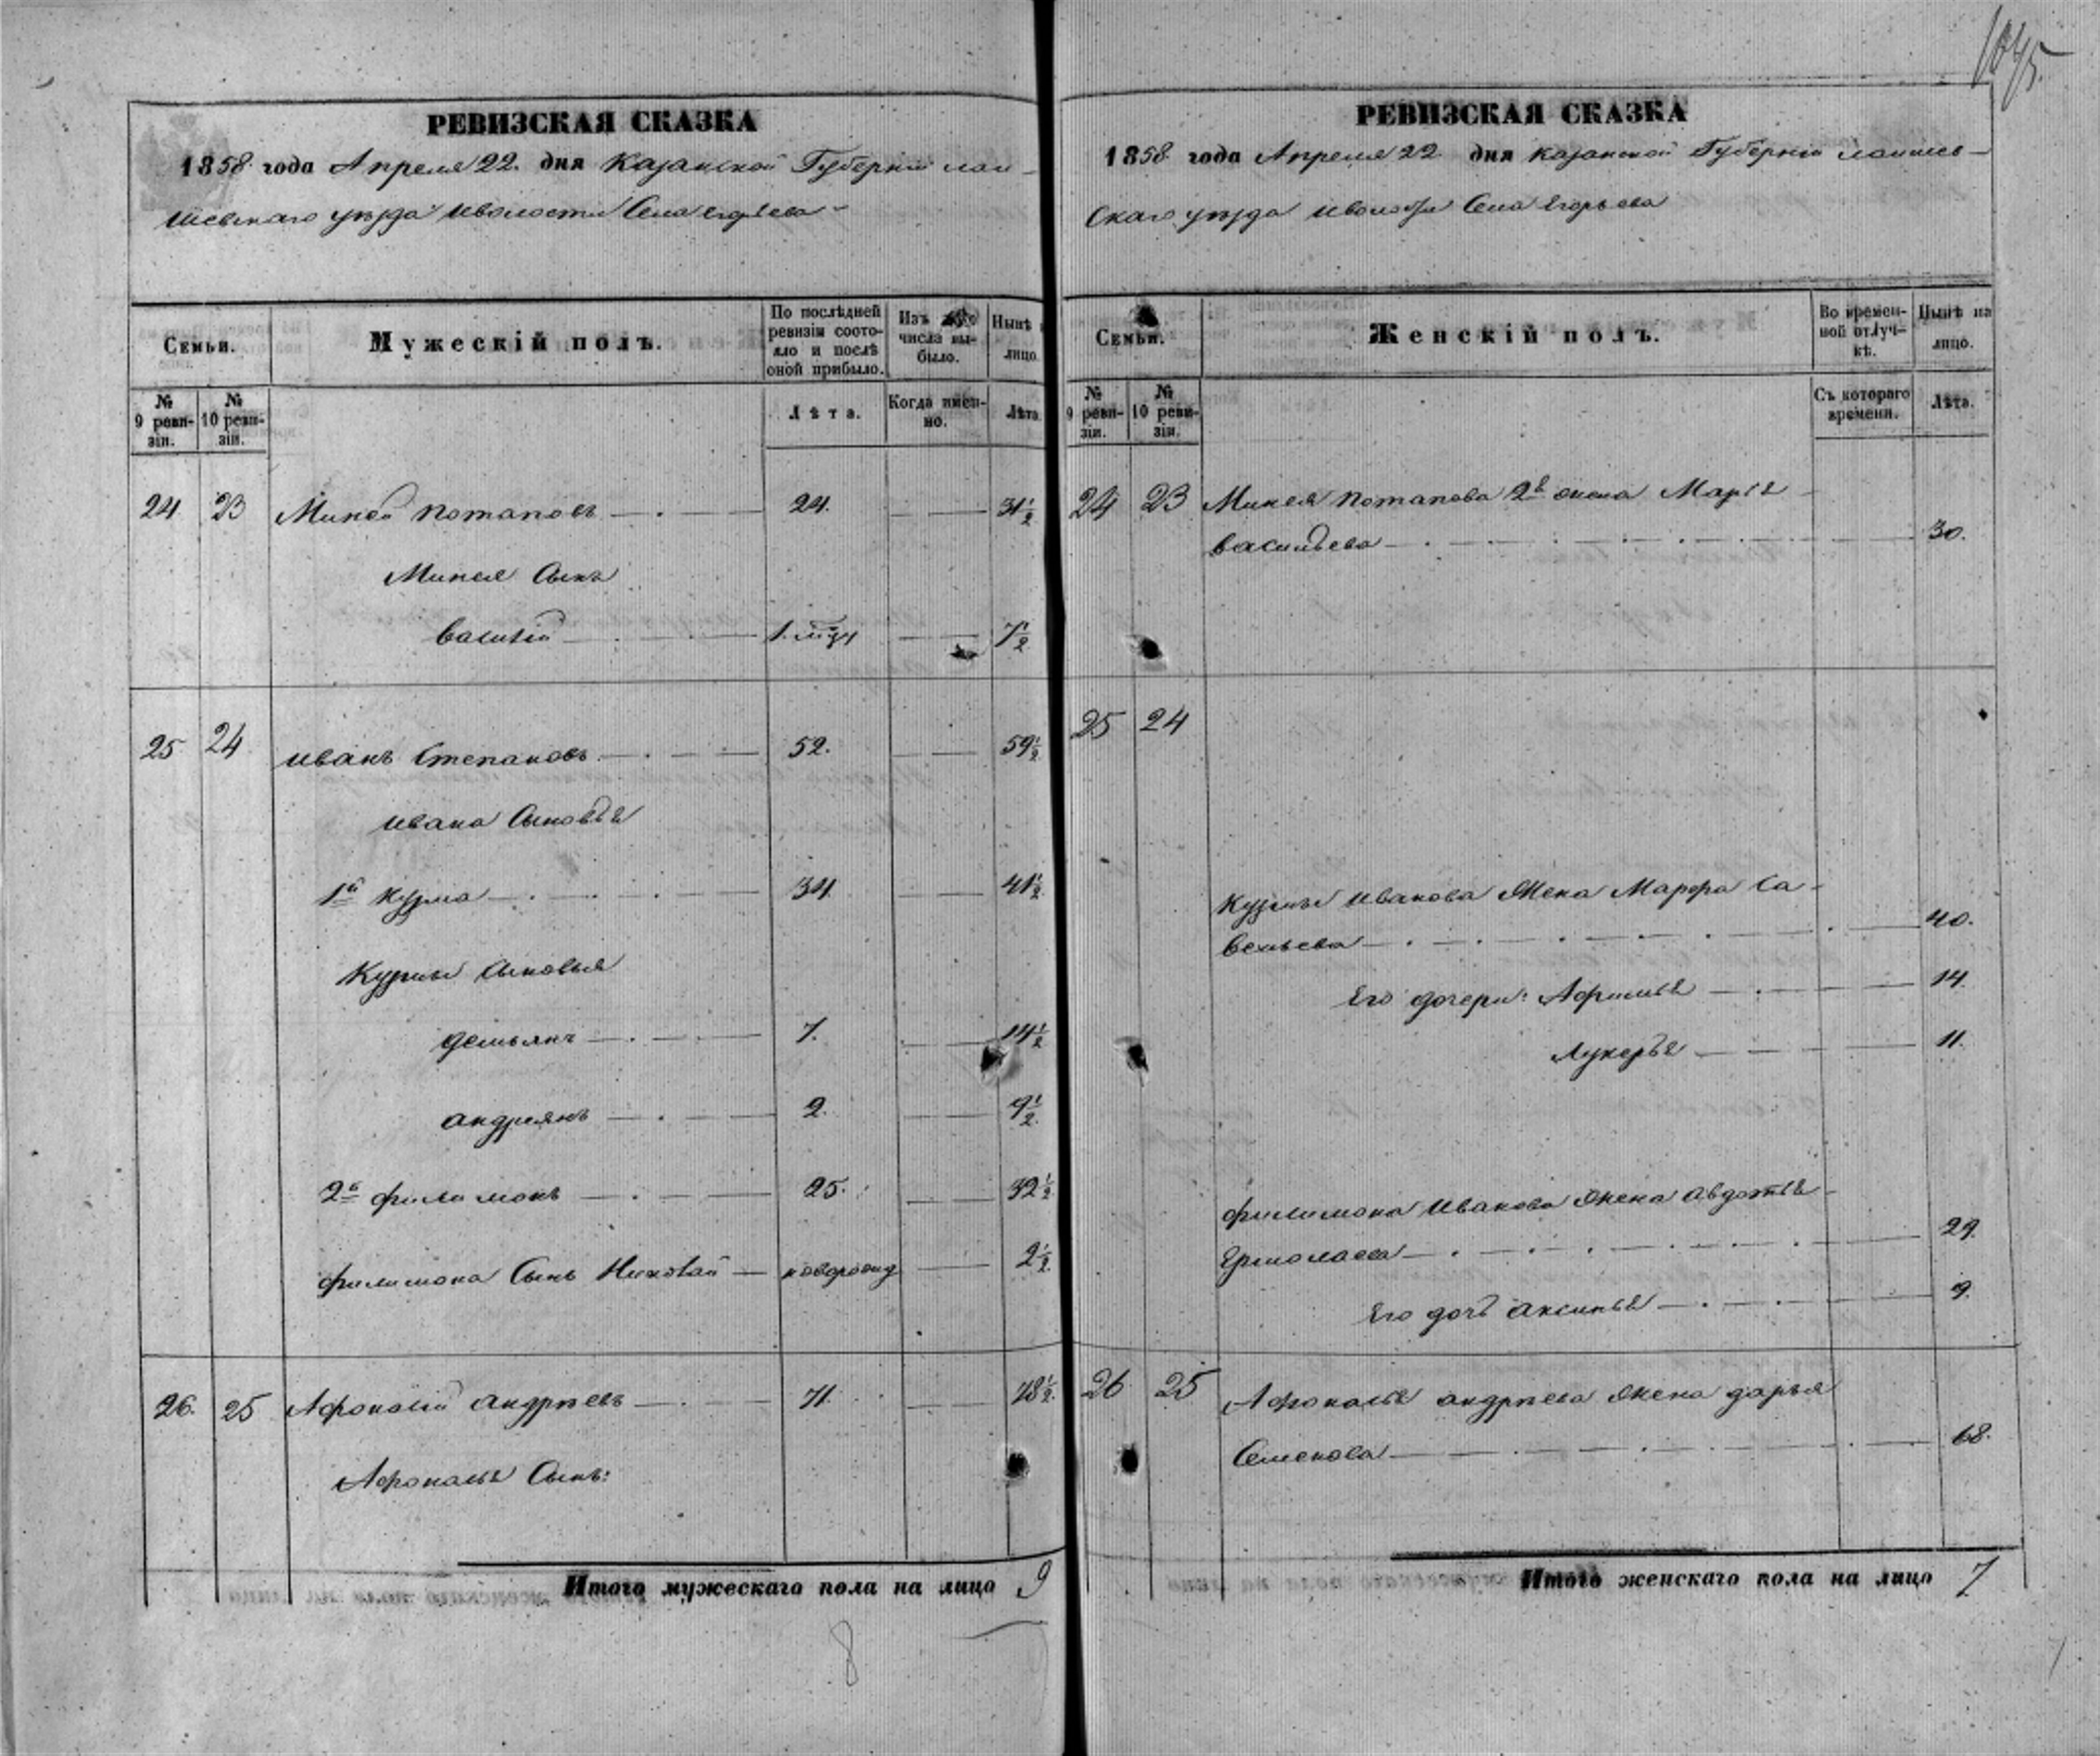 1045.
РЕВИЗСКАЯ СКАЗКА
1858 года Апреля 22. дня Казанской Губерніи лаи-
шевскаго уѣзда и волости Села Егорьева
Семьи.
Мужескій полъ.
По послѣдней ревизіи состояло и послѣ оной прибыло.
Изъ числа выбыло.
Нынѣ лицо.
№ 9 ревизіи.
№ 10 ревизіи.
Лѣта.
Когда именно.
Лѣта.
24 23 Миней Потаповъ 24. 31½
Минея Сынъ
Василій 7½
25 24 Иванъ Степановъ 52. 59½
Ивана Сыновья
1й Кузма 34. 41½
Кузмы Сыновья
Демьянъ 7. 14½
Андреянъ 2. 9½
2й Филимонъ 25. 32½
Филимона Сынъ Николай новорожд 2½
26. 25 Афонасій Андрѣевъ 71. 78½
Афонасья Сынъ:
Итого мужескаго пола на лицо 9
8
РЕВИЗСКАЯ СКАЗКА
1858 года Апреля 22 дня Казанской Губерніи лаишев-
скаго уѣзда и волости Села Егорьева
Семьи.
Женскій полъ.
Во временной отлучкѣ.
Нынѣ на лицо.
№ 9 ревизіи.
№ 10 ревизіи.
Съ котораго времени.
Лѣта.
24 23 Минея Потапова 2я жена Марья
Васильева 30.
25 24
Кузмы Иванова Жена Марфа Са-
вельева 40.
Его дочери: Афимья 14.
Лукерья 11.
Филимона Иванова Жена Авдотья
Ермолаева 29.
Его дочь Аксинья 9.
26 25 Афонасья Андрѣева Жена Дарья
Семенова 68.
Итого женскаго пола на лицо 7